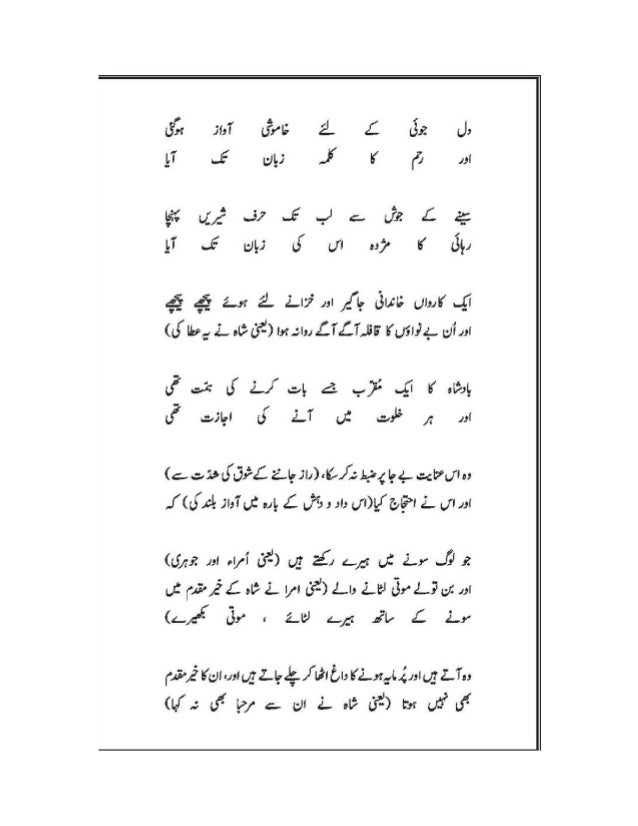 دل جوئی کے لئے خاموشی آواز ہوگئی
اور رحم کا کلمہ زبان تک آیا
سینے کے جوش سے لب تک حرف شیریں پہنچا
رہائی کا مژدہ اس کی زبان تک آیا
ایک کارواں خاندانی جاگیر اور خزانے لئے ہوئے پیچھے پیچھے
اور اُن بے نواؤں کا قافلہ آگے آگے روانہ ہوا (یعنی شاہ نے یہ عطا کی)
بادشاہ کا ایک مُقرّب جسے بات کرنے کی ہمّت تھی
اور ہر خلوت میں آنے کی اجازت تھی
وہ اس عنایت بے جا پر ضبط نہ کرسکا، (راز جاننے کے شوق کی شدّت سے)
اور اس نے احتجاج کیا(اس داد و دہش کے بارہ میں آواز بلند کی) کہ
جو لوگ سونے میں ہیرے رکھتے ہیں (یعنی اُمراء اور جوہری)
اور بن تولے موتی لٹانے والے (یعنی امرا نے شاہ کے خیر مقدم میں
سونے کے ساتھ ہیرے لٹائے ، موتی بکھیرے)
وہ آتے ہیں اور پُر مایہ ہونے کا داغ اٹھا کر چلے جاتے ہیں اور، ان کا خیر مقدم
بھی نہیں ہوتا (یعنی شاہ نے ان سے مرحبا بھی نہ کہا)